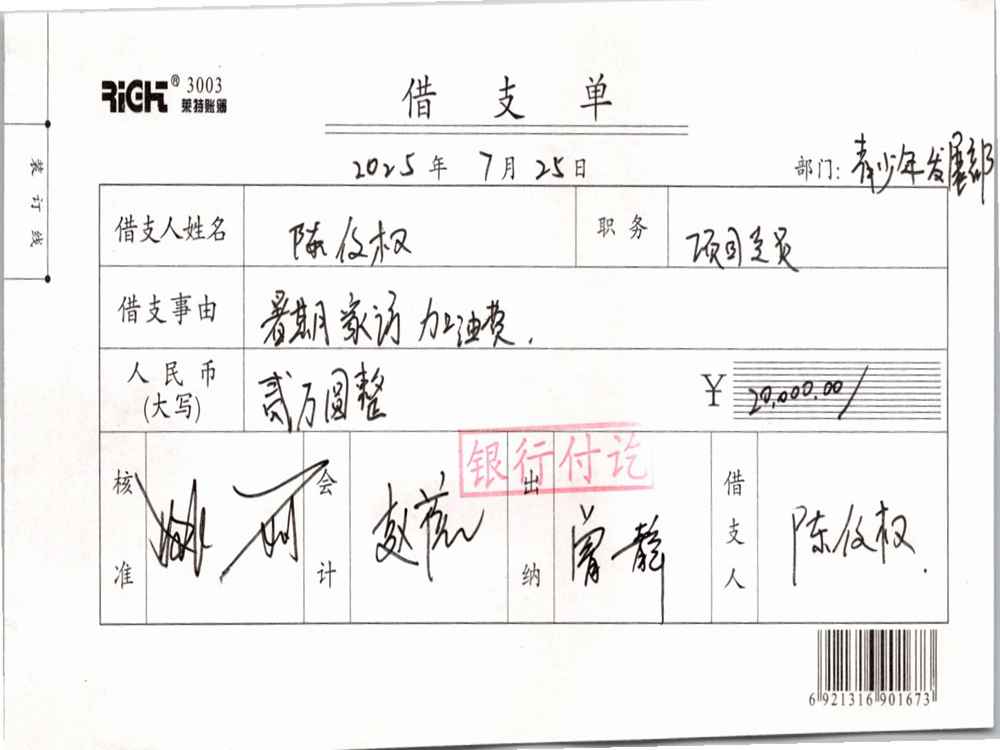 RiCHT® 3003
莱特账簿
借支单
2025年7月25日
部门: 青少年发展部
借支人姓名 陈俊权 职务 项目专员
借支事由 暑期家访加油费.
人民币(大写) 贰万圆整 ¥ 20,000.00/
银行付讫
核准 会计 出纳 曾静 借支人 陈俊权.
装订线
6 921316 901673